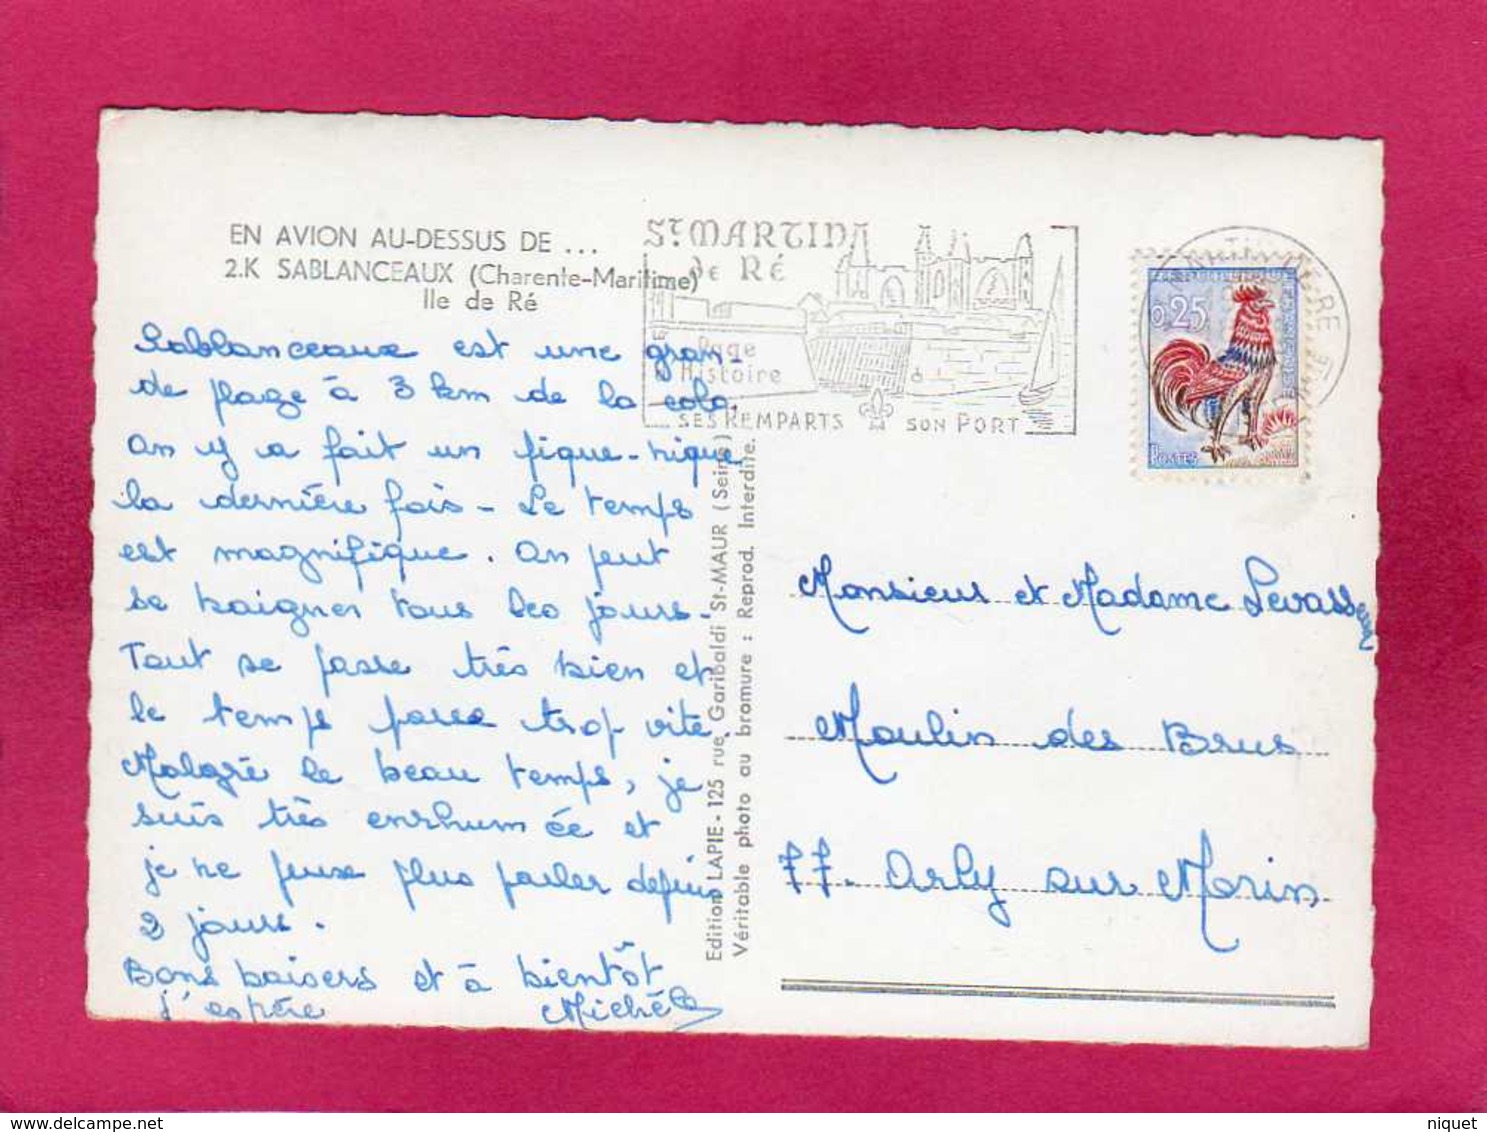 EN AVION AU-DESSUS DE ...
2.K SABLANCEAUX (Charente-Maritime)
Ile de Ré
Sablanceaux est une gran-
de plage à 3 km de la colo.
On y a fait un pique-nique
la dernière fois - Le temps
est magnifique. On peut
se baigner tous les jours.
Tout se passe très bien et
le temps passe trop vite.
Malgré le beau temps, je
suis très enrhumée et
je ne peux plus parler depuis
2 jours.
Bons baisers et à bientôt
j'espère Michèle
ST MARTIN
de RÉ
Page
Histoire
SES REMPARTS SON PORT
0,25
POSTES
RE
Edition LAPIE - 125 rue Garibaldi St-MAUR (Seine)
Véritable photo au bromure : Reprod. Interdite.
Monsieur et Madame Levasseur
Moulin des Brus
77. Orly sur Morin
delcampe.net
niquet